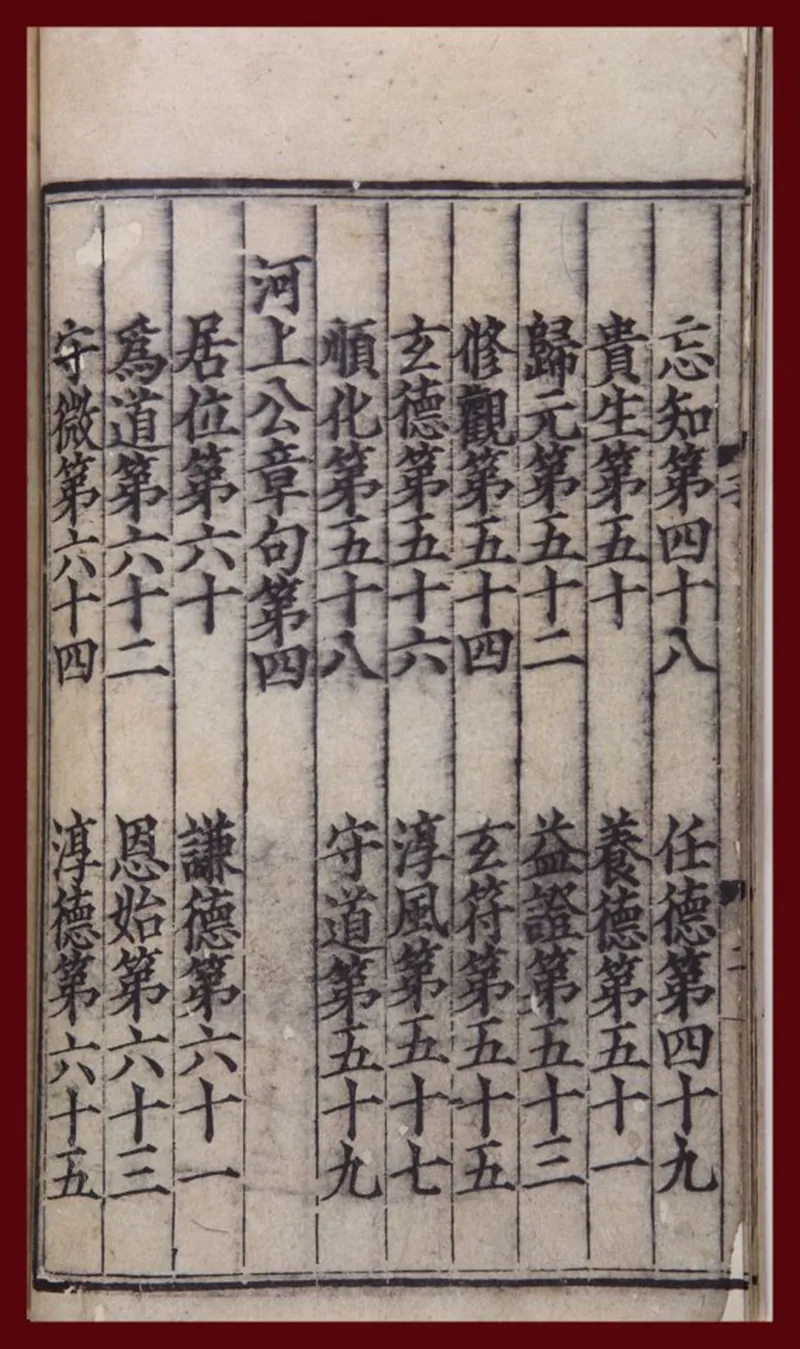 忘知第四十八 任德第四十九
貴生第五十 養德第五十一
歸元第五十二 益證第五十三
修觀第五十四 玄符第五十五
玄德第五十六 淳風第五十七
順化第五十八 守道第五十九
河上公章句第四
居位第六十 謙德第六十一
爲道第六十二 恩始第六十三
守微第六十四 淳德第六十五